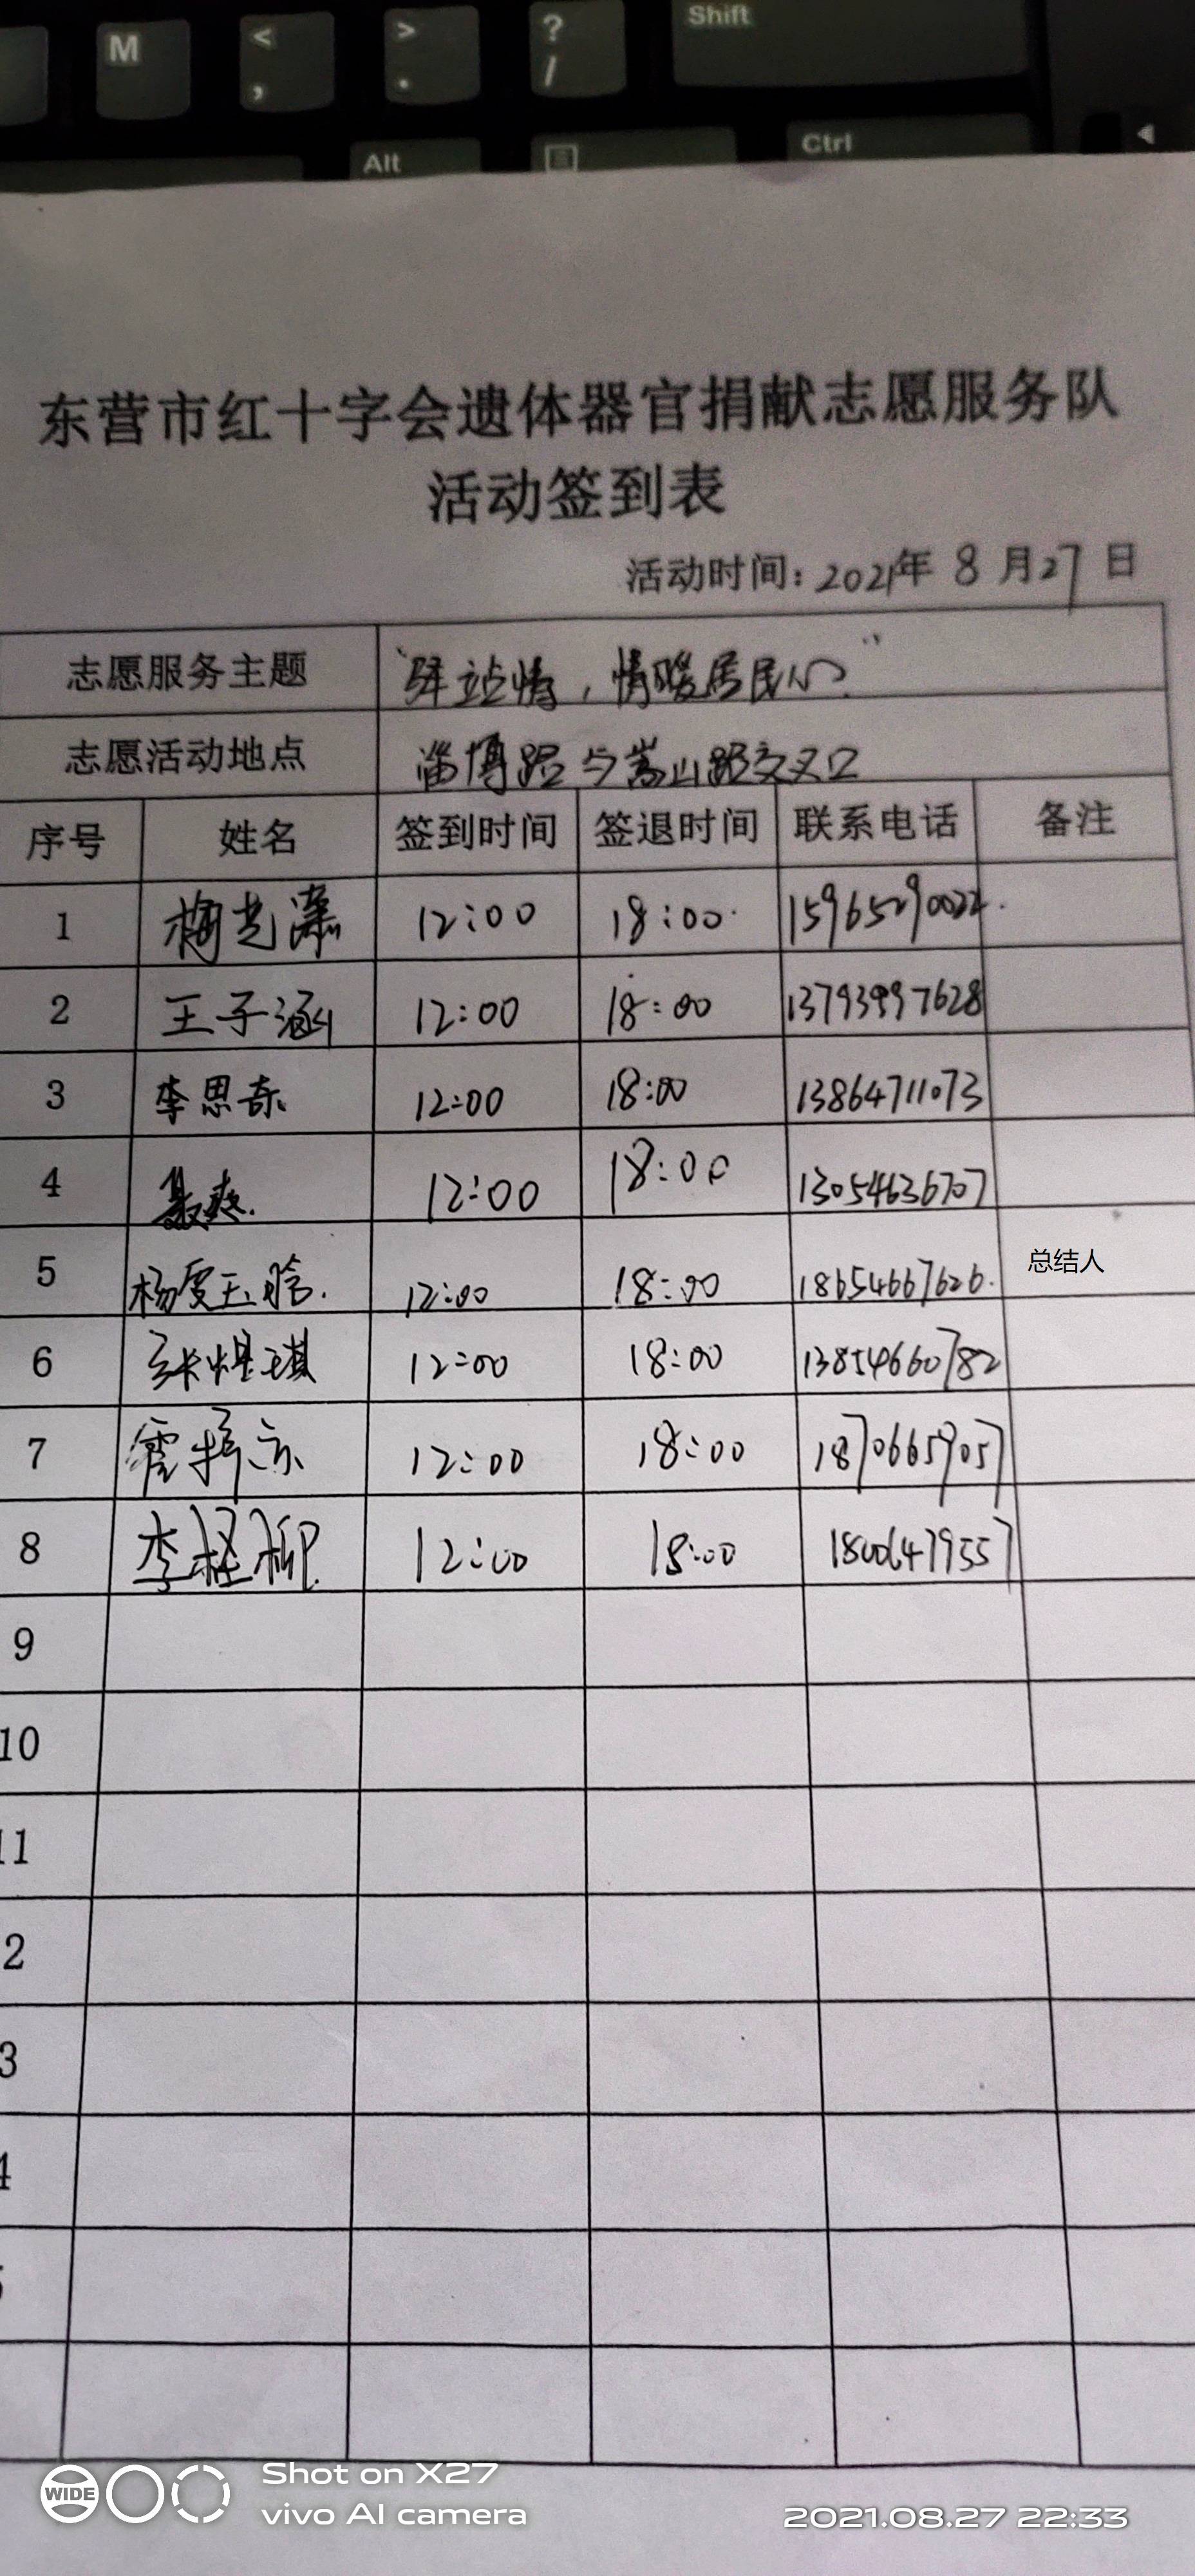 M < , > . ? / Shift
Alt Ctrl
东营市红十字会遗体器官捐献志愿服务队
活动签到表
活动时间：2021年 8 月 27 日
志愿服务主题 "驿站情，情暖居民心"
志愿活动地点 淄博路与嵩山路交叉口
序号 姓名 签到时间 签退时间 联系电话 备注
1 12:00 18:00
2 王子涵 12:00 18:00 13793997628
3 李思奇 12:00 18:00 13864711073
4 聂爽 12:00 18:00 13054636707
5 12:00 18:00 18654667626 总结人
6 12:00 18:00 13854660782
7 12:00 18:00 18706659057
8 李柽柳 12:00 18:00 18006479557
9
10
11
2
3
4
5
WIDE Shot on X27
vivo AI camera
2021.08.27 22:33